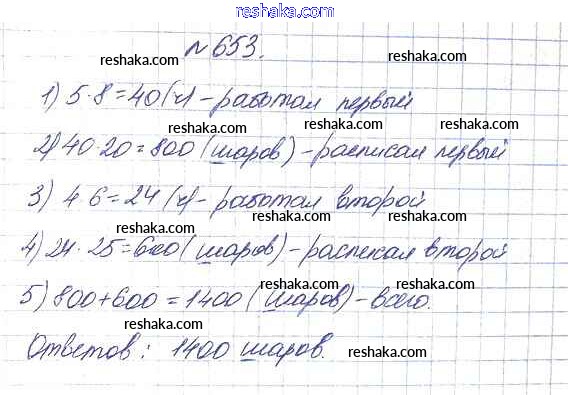 reshaka.com
№653.
reshaka.com
reshaka.com
1) 5·8=40(ч)-работал первый
reshaka.com
reshaka.com
2) 40·20=800 (шаров)-расписал первый
reshaka.com
3) 4 6=24(ч)-работал второй
reshaka.com
reshaka.com
4) 24·25=600(шаров)-расписал второй
reshaka.com
reshaka.com
5) 800+600=1400(шаров)-всего.
reshaka.com
reshaka.com
Ответов: 1400 шаров.
reshaka.com